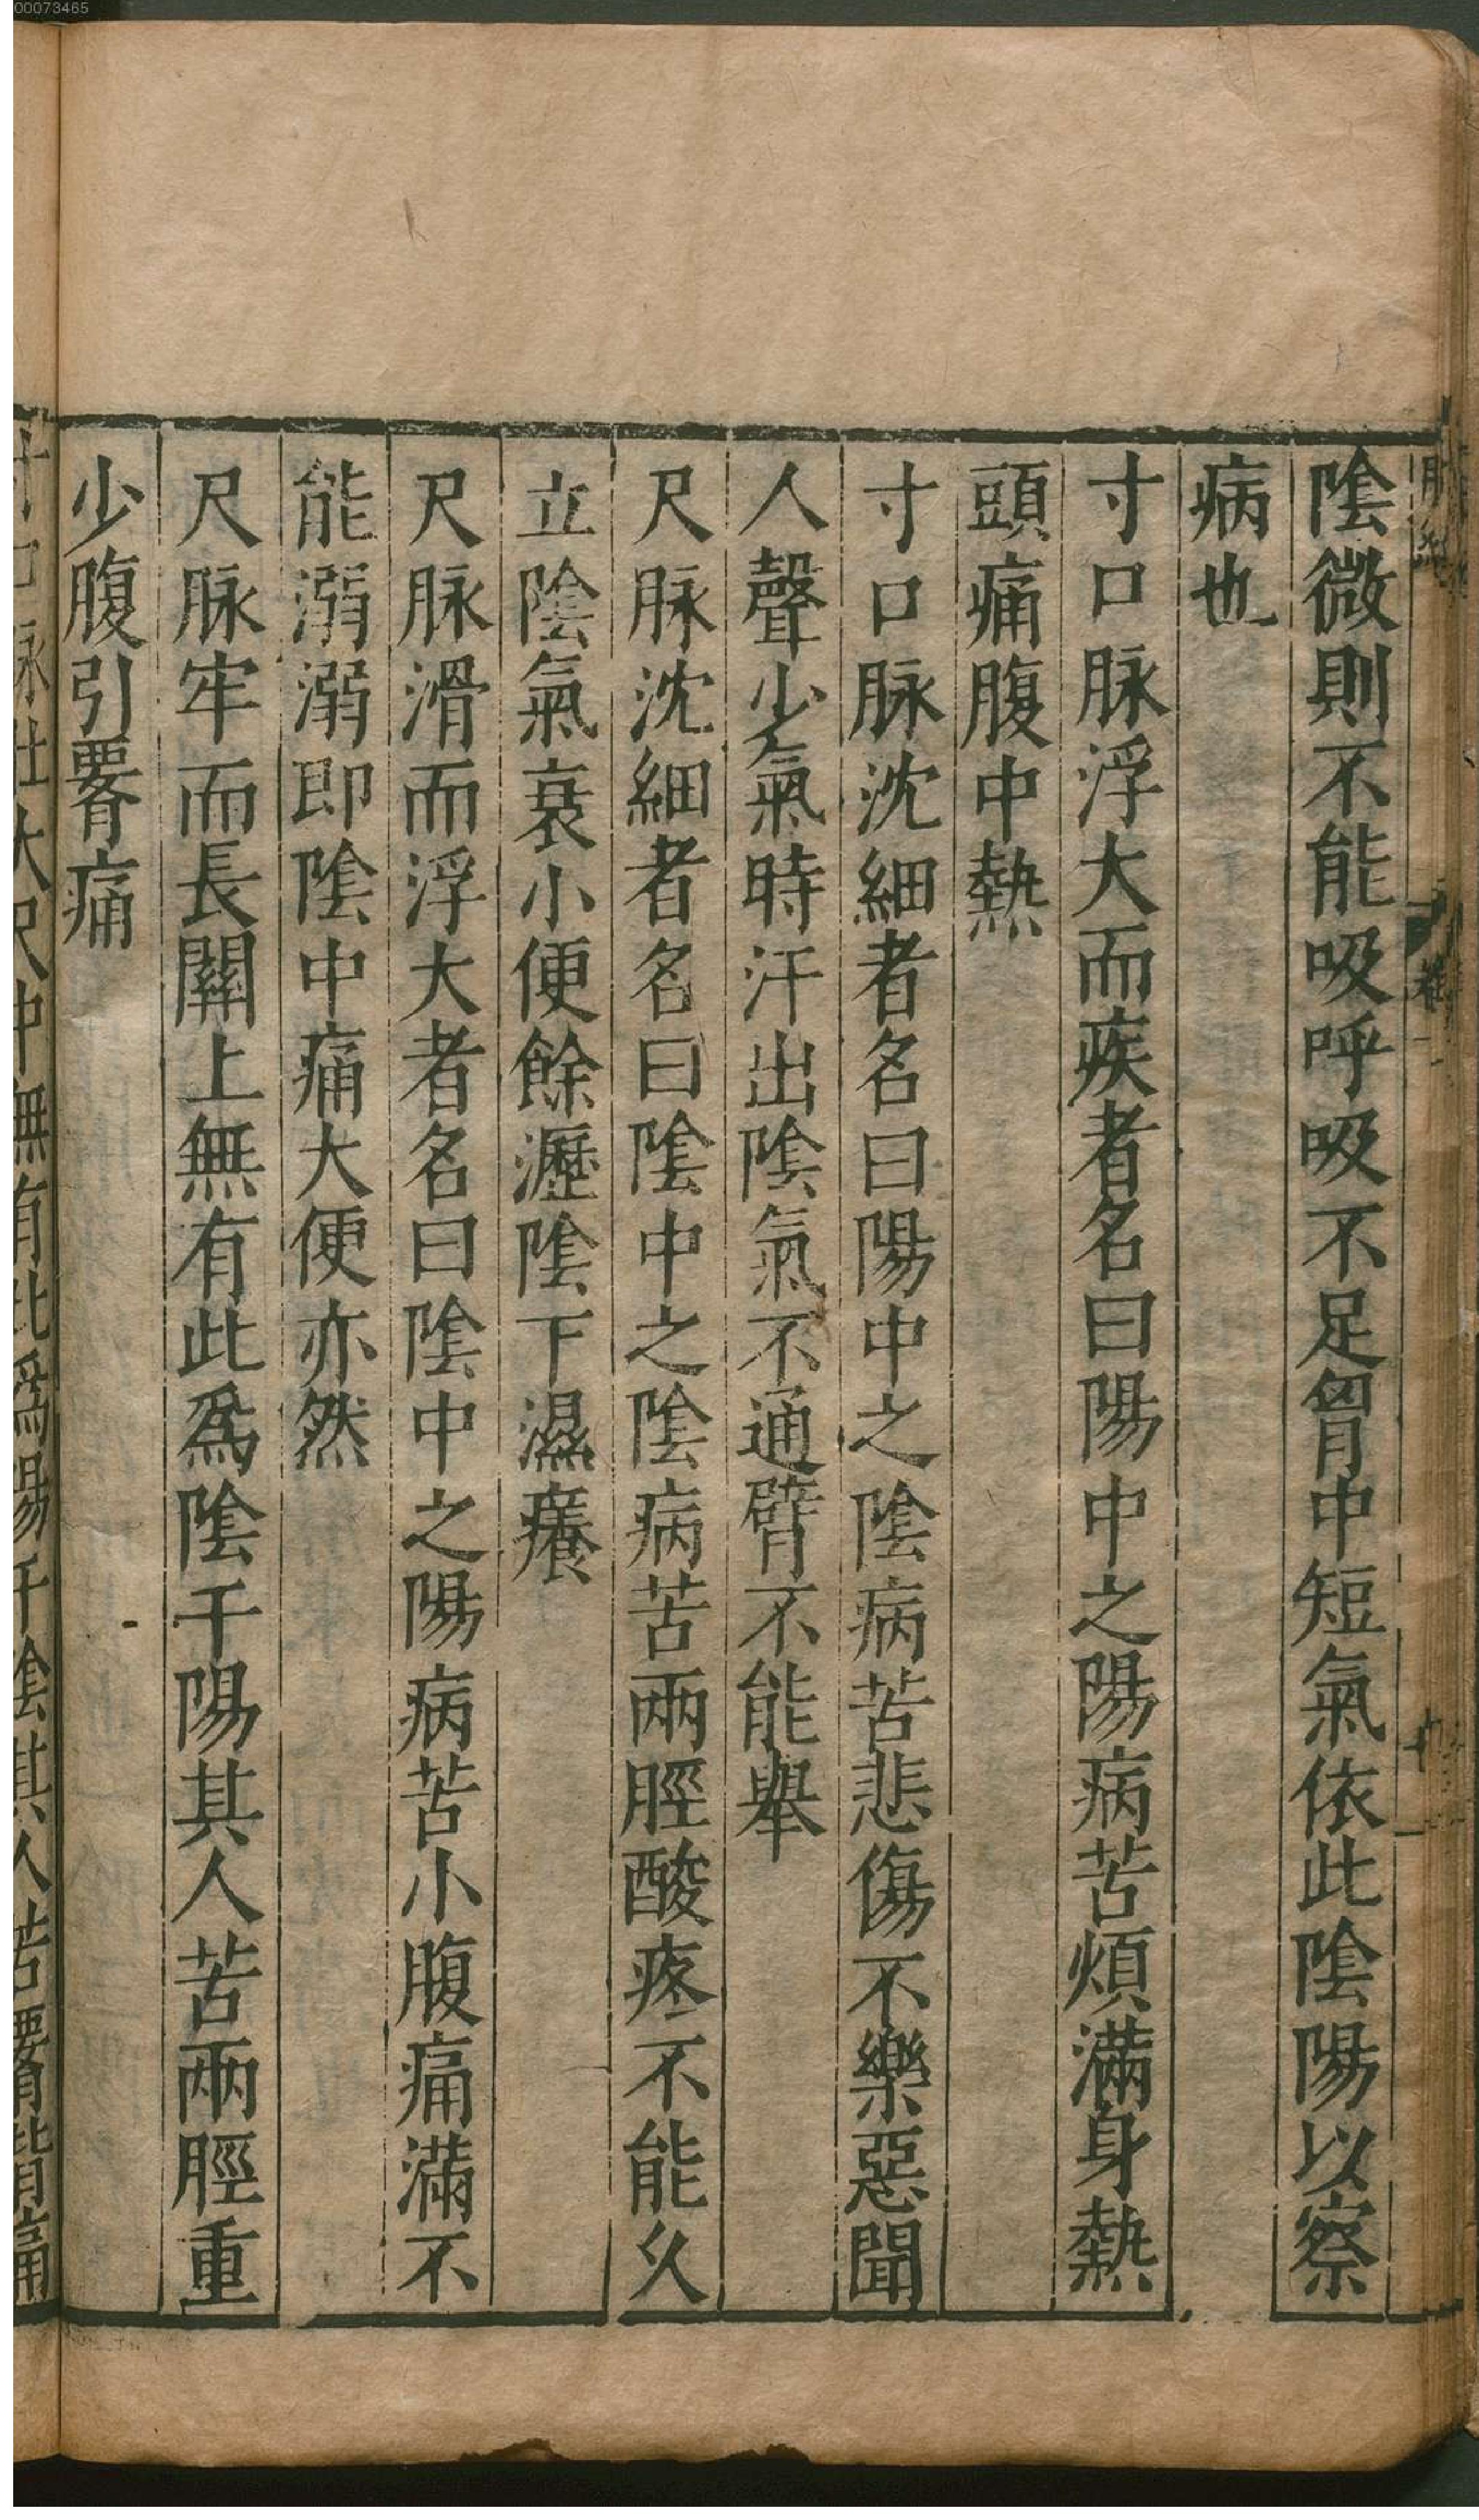 00073465
陰微則不能吸呼吸不足胷中短氣依此陰陽以察
病也
寸口脉浮大而疾者名曰陽中之陽病苦煩滿身熱
頭痛腹中熱
寸口脉沈細者名曰陽中之陰病苦悲傷不樂惡聞
人聲少氣時汗出陰氣不通臂不能舉
尺脉沈細者名曰陰中之陰病苦兩脛酸疼不能久
立陰氣衰小便餘瀝陰下濕癢
尺脉滑而浮大者名曰陰中之陽病苦小腹痛滿不
能溺溺即陰中痛大便亦然
尺脉牢而長關上無有此爲陰干陽其人苦兩脛重
少腹引䚻痛